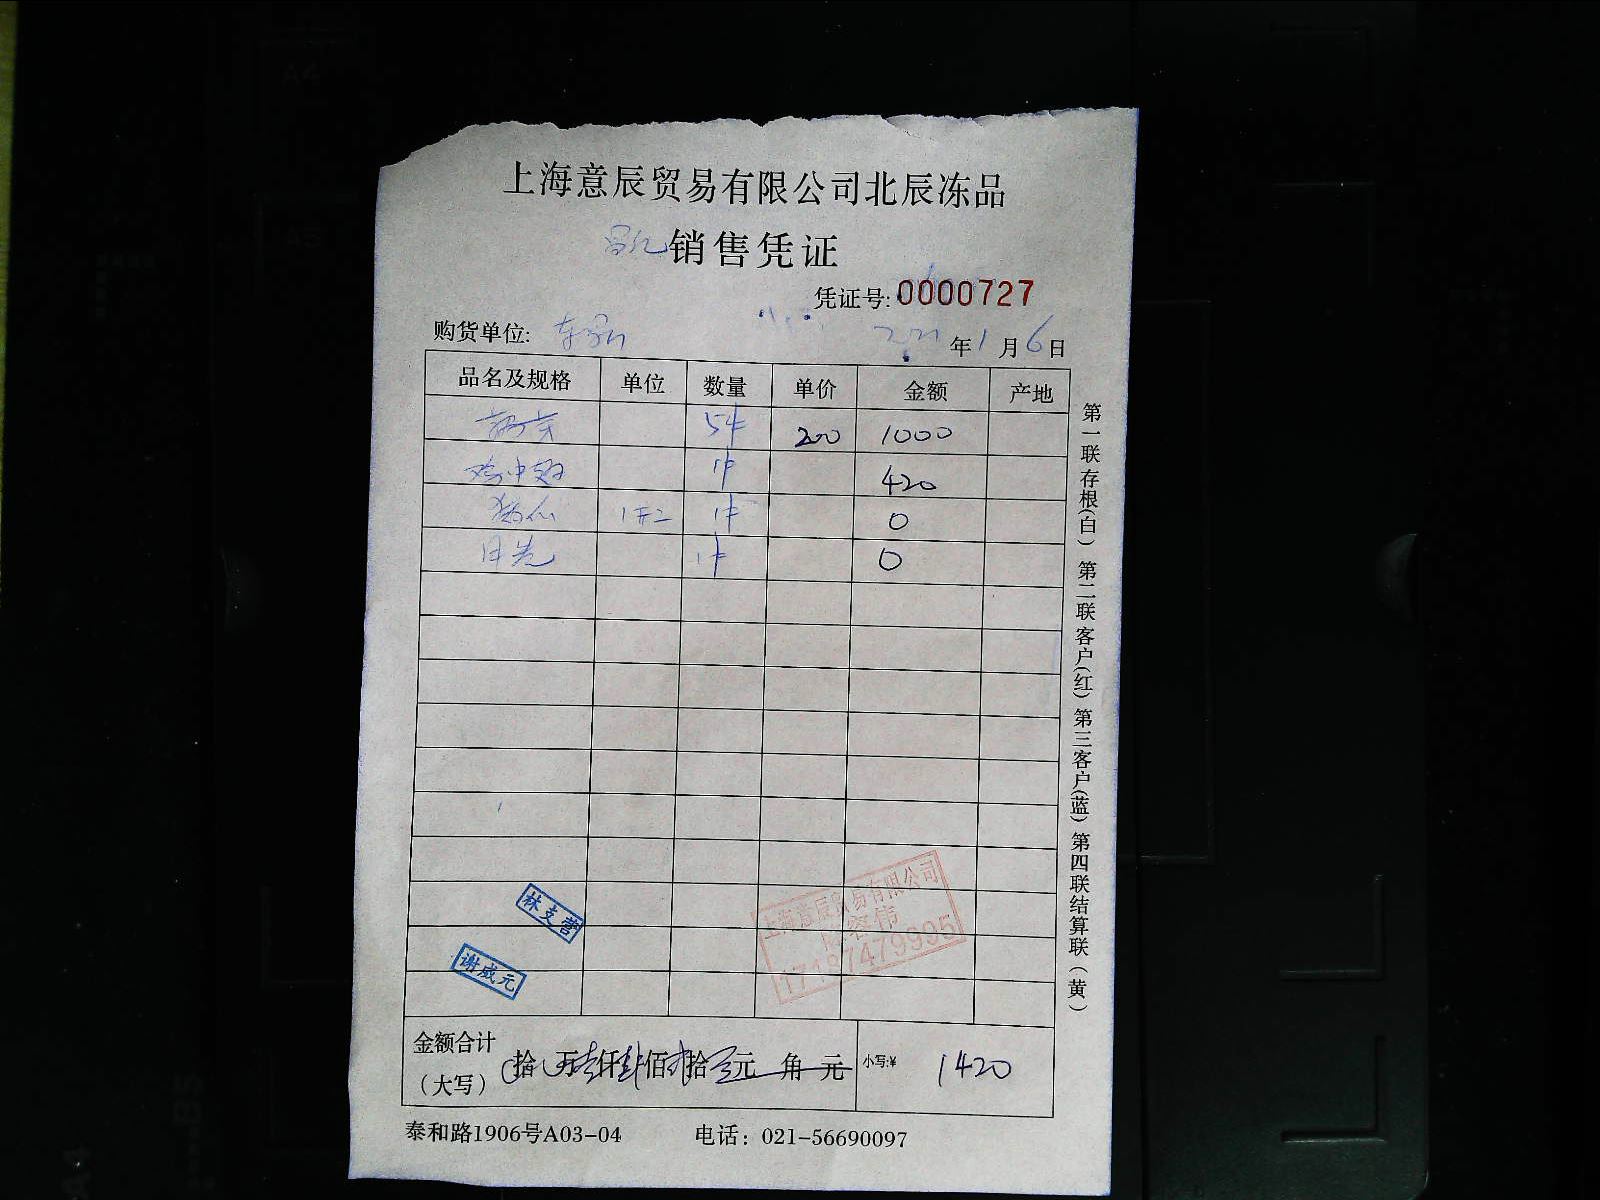 上海意辰贸易有限公司北辰冻品
销售凭证
凭证号:0000727
购货单位:
年1月6日
品名及规格 单位 数量 单价 金额 产地
5件 200 1000
鸡中翅 1件 420
1件 0
1件 0
林支营
谢成元
上海意辰贸易有限公司
17187479995
金额合计
(大写) 拾 万壹仟肆佰贰拾 元 角 元 小写:¥ 1420
泰和路1906号A03-04 电话：021-56690097
第一联存根(白) 第二联客户(红) 第三客户(蓝) 第四联结算联(黄)